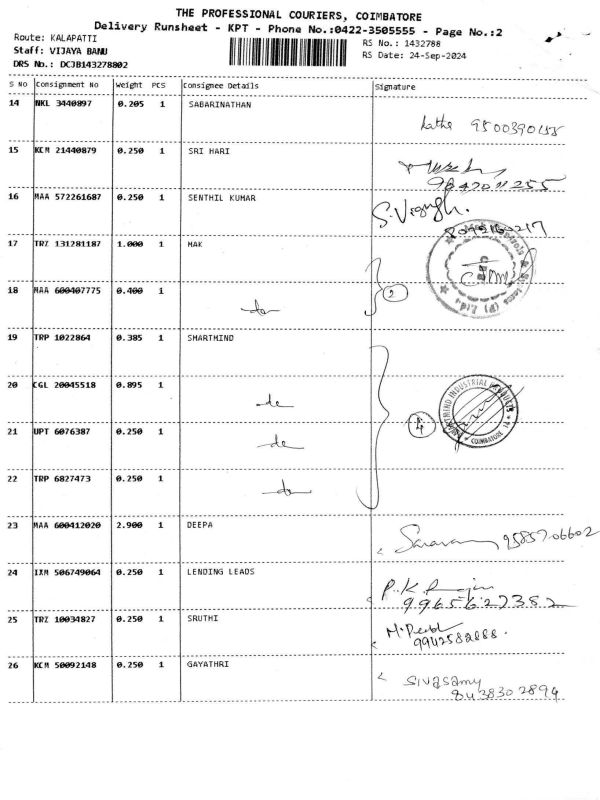 THE PROFESSIONAL COURIERS, COIMBATORE
Delivery Runsheet - KPT - Phone No.:0422-3505555 - Page No.:2
Route: KALAPATTI
RS No.: 1432788
Staff: VIJAYA BANU
RS Date: 24-Sep-2024
DRS No.: DCJB143278802
S NO Consignment No Weight PCS Consignee Details Signature
14 NKL 3440897 0.205 1 SABARINATHAN
Latha
15 KCM 21440879 0.250 1 SRI HARI
16 MAA 572261687 0.250 1 SENTHIL KUMAR
17 TRZ 131281187 1.000 1 MAK
18 MAA 600407775 0.400 1 do 2
19 TRP 1022864 0.385 1 SHARTHIND
20 CGL 20045518 0.895 1 do 4
SHARTHIND INDUSTRIAL PRODUCTS
COIMBATORE
21 UPT 6076387 0.250 1 do
22 TRP 6827473 0.250 1 do
23 MAA 600412020 2.900 1 DEEPA 9585706602
24 IXM 506749064 0.250 1 LENDING LEADS
9965627382
25 TRZ 10034827 0.250 1 SRUTHI
26 KCM 50092148 0.250 1 GAYATHRI
sivasamy
8438302894